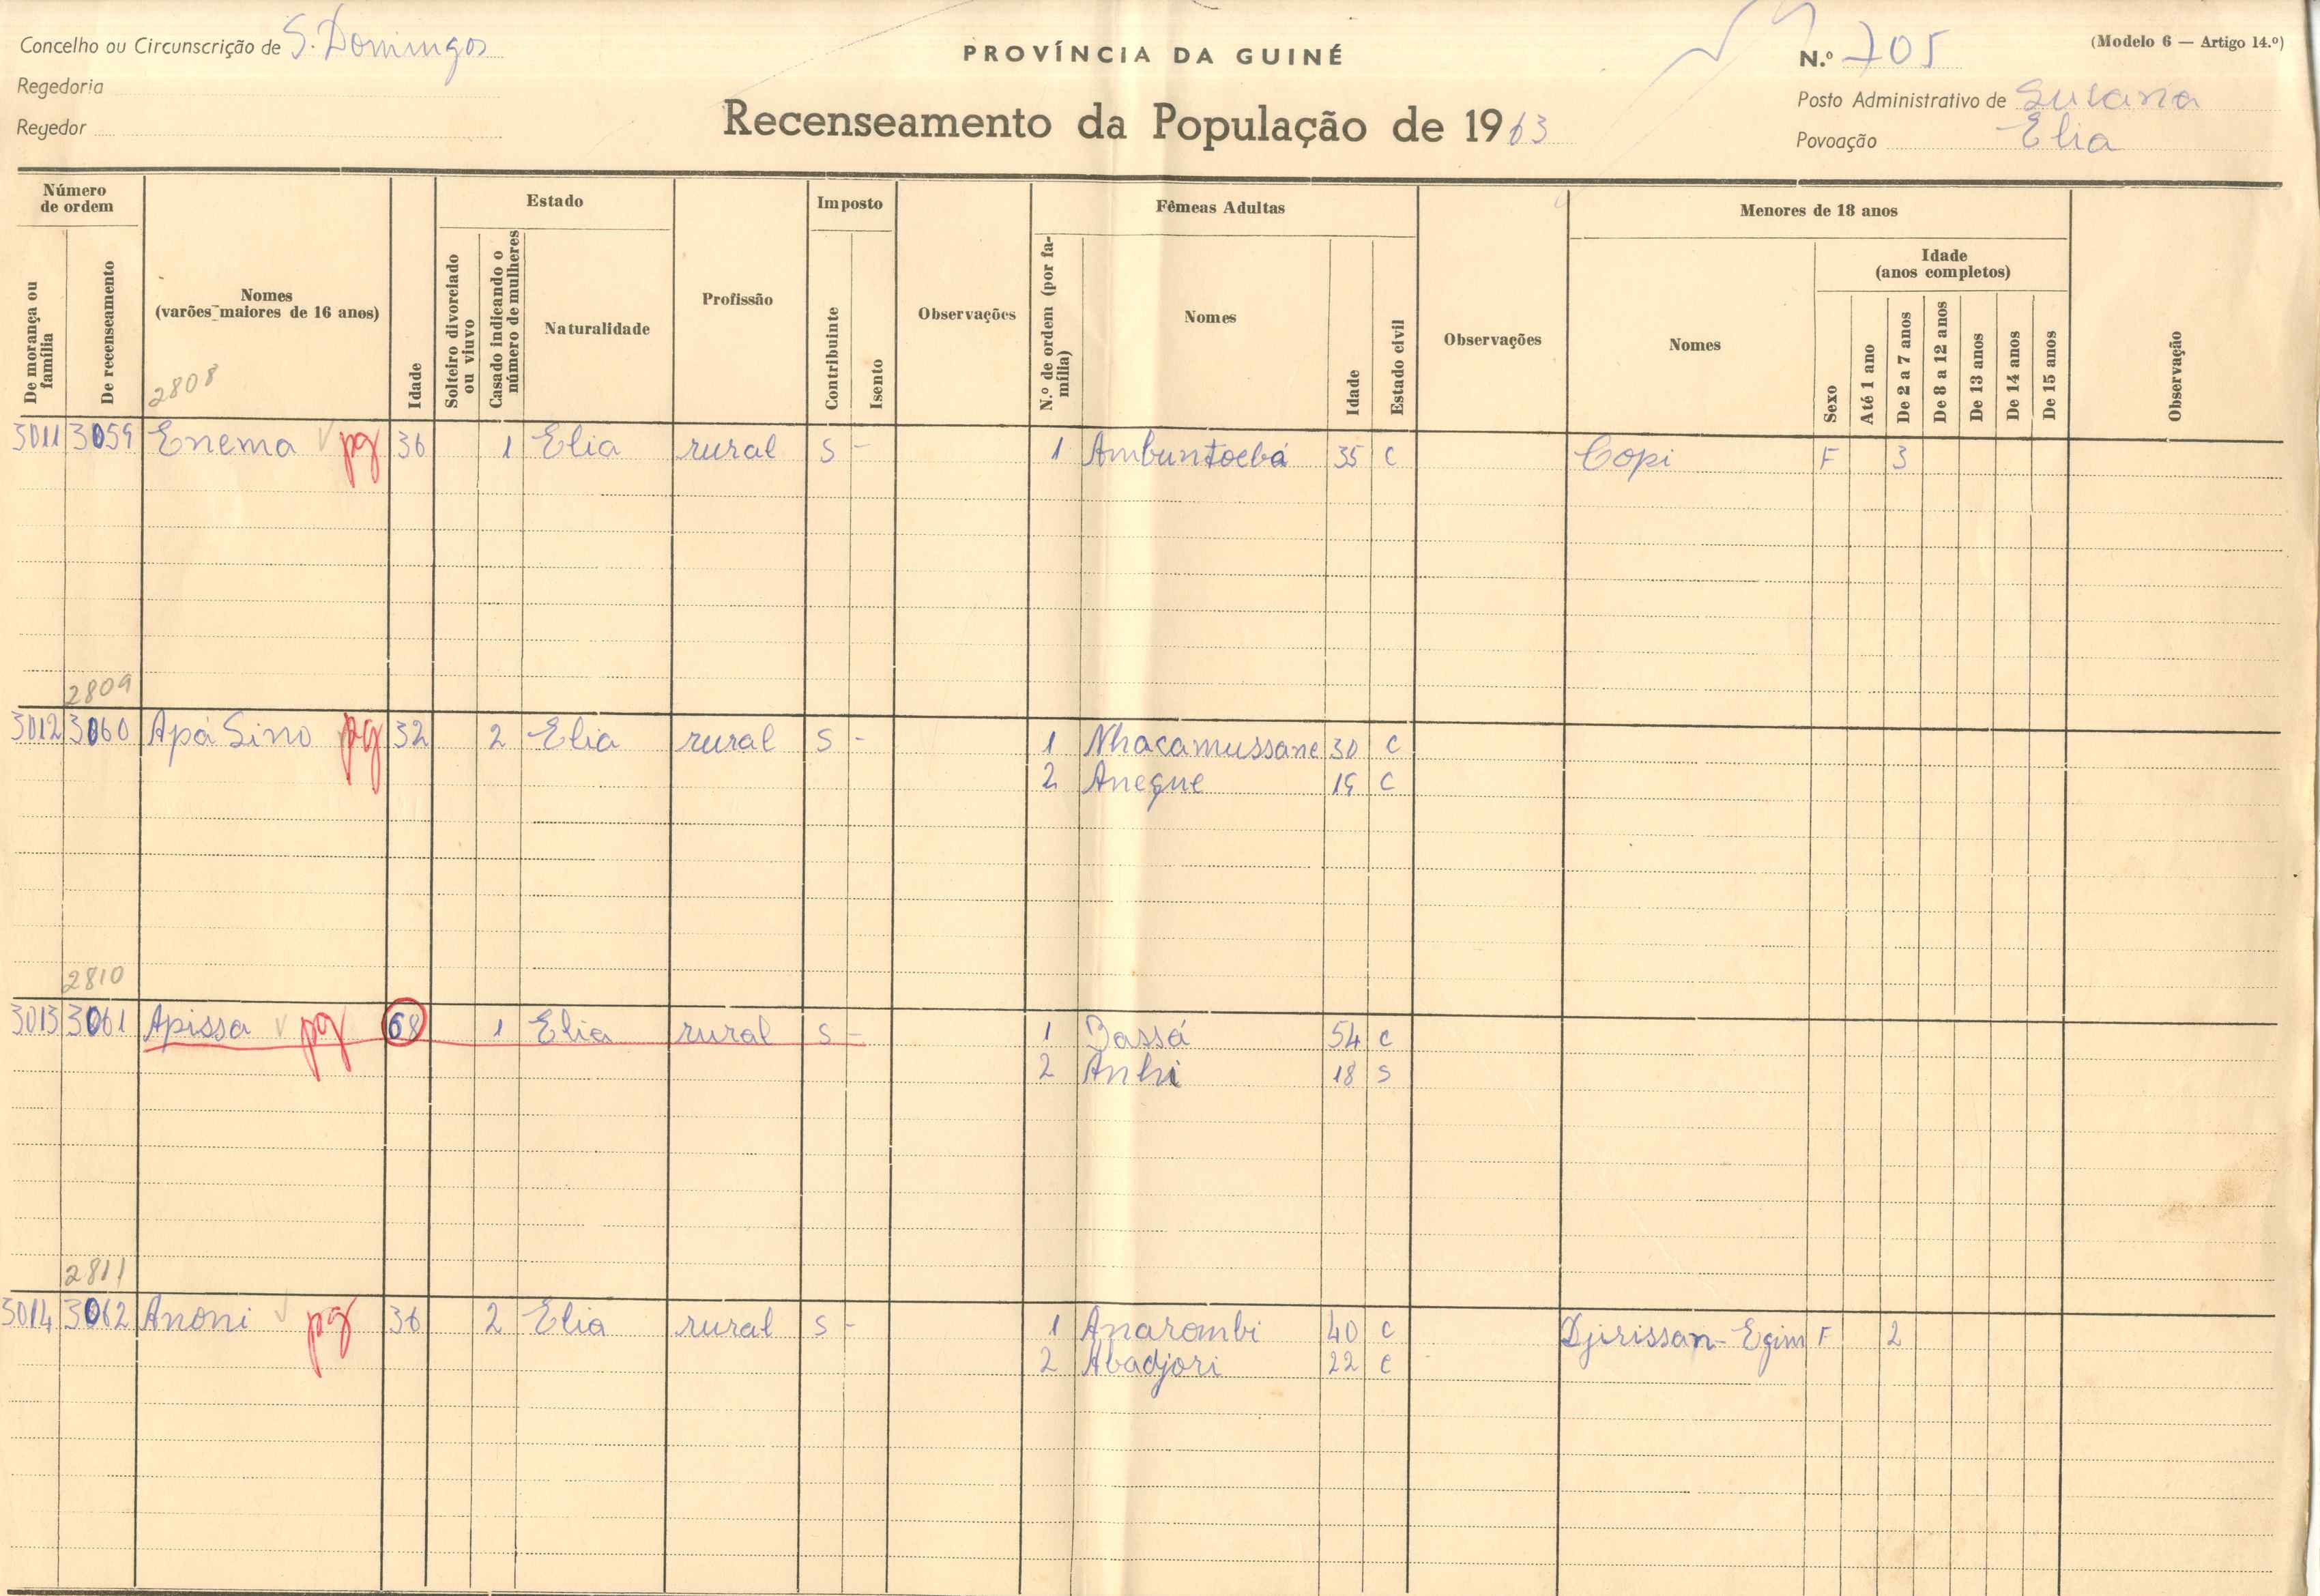 Concelho ou Circunscrição de S. Domingos
PROVÍNCIA DA GUINÉ
N.º 705
(Modelo 6 — Artigo 14.º)
Regedoria
Posto Administrativo de Susana
Regedor
Recenseamento da População de 1963
Povoação Elia
Número de ordem
De morança ou família
De recenseamento
Nomes
(varões maiores de 16 anos)
Idade
Estado
Solteiro divorciado ou viuvo
Casado indicando o número de mulheres
Naturalidade
Profissão
Imposto
Contribuinte
Isento
Observações
Fêmeas Adultas
N.º de ordem (por família)
Nomes
Idade
Estado civil
Observações
Menores de 18 anos
Nomes
Sexo
Idade
(anos completos)
Até 1 ano
De 2 a 7 anos
De 8 a 12 anos
De 13 anos
De 14 anos
De 15 anos
Observação
2808
3011 3059 Enema pg 36 1 Elia rural S - 1 Ambuntoebá 35 C Copi F 3
2809
3012 3060 Apá Sino pg 32 2 Elia rural S - 1 Nhacamussane 30 C
2 Aneque 19 C
2810
3013 3061 Apissa pg 68 1 Elia rural S - 1 Bassá 54 C
2 Anhi 18 S
2811
3014 3062 Anoni pg 36 2 Elia rural S - 1 Anarombi 40 C Djirissan - Egim F 2
2 Abadjori 22 C